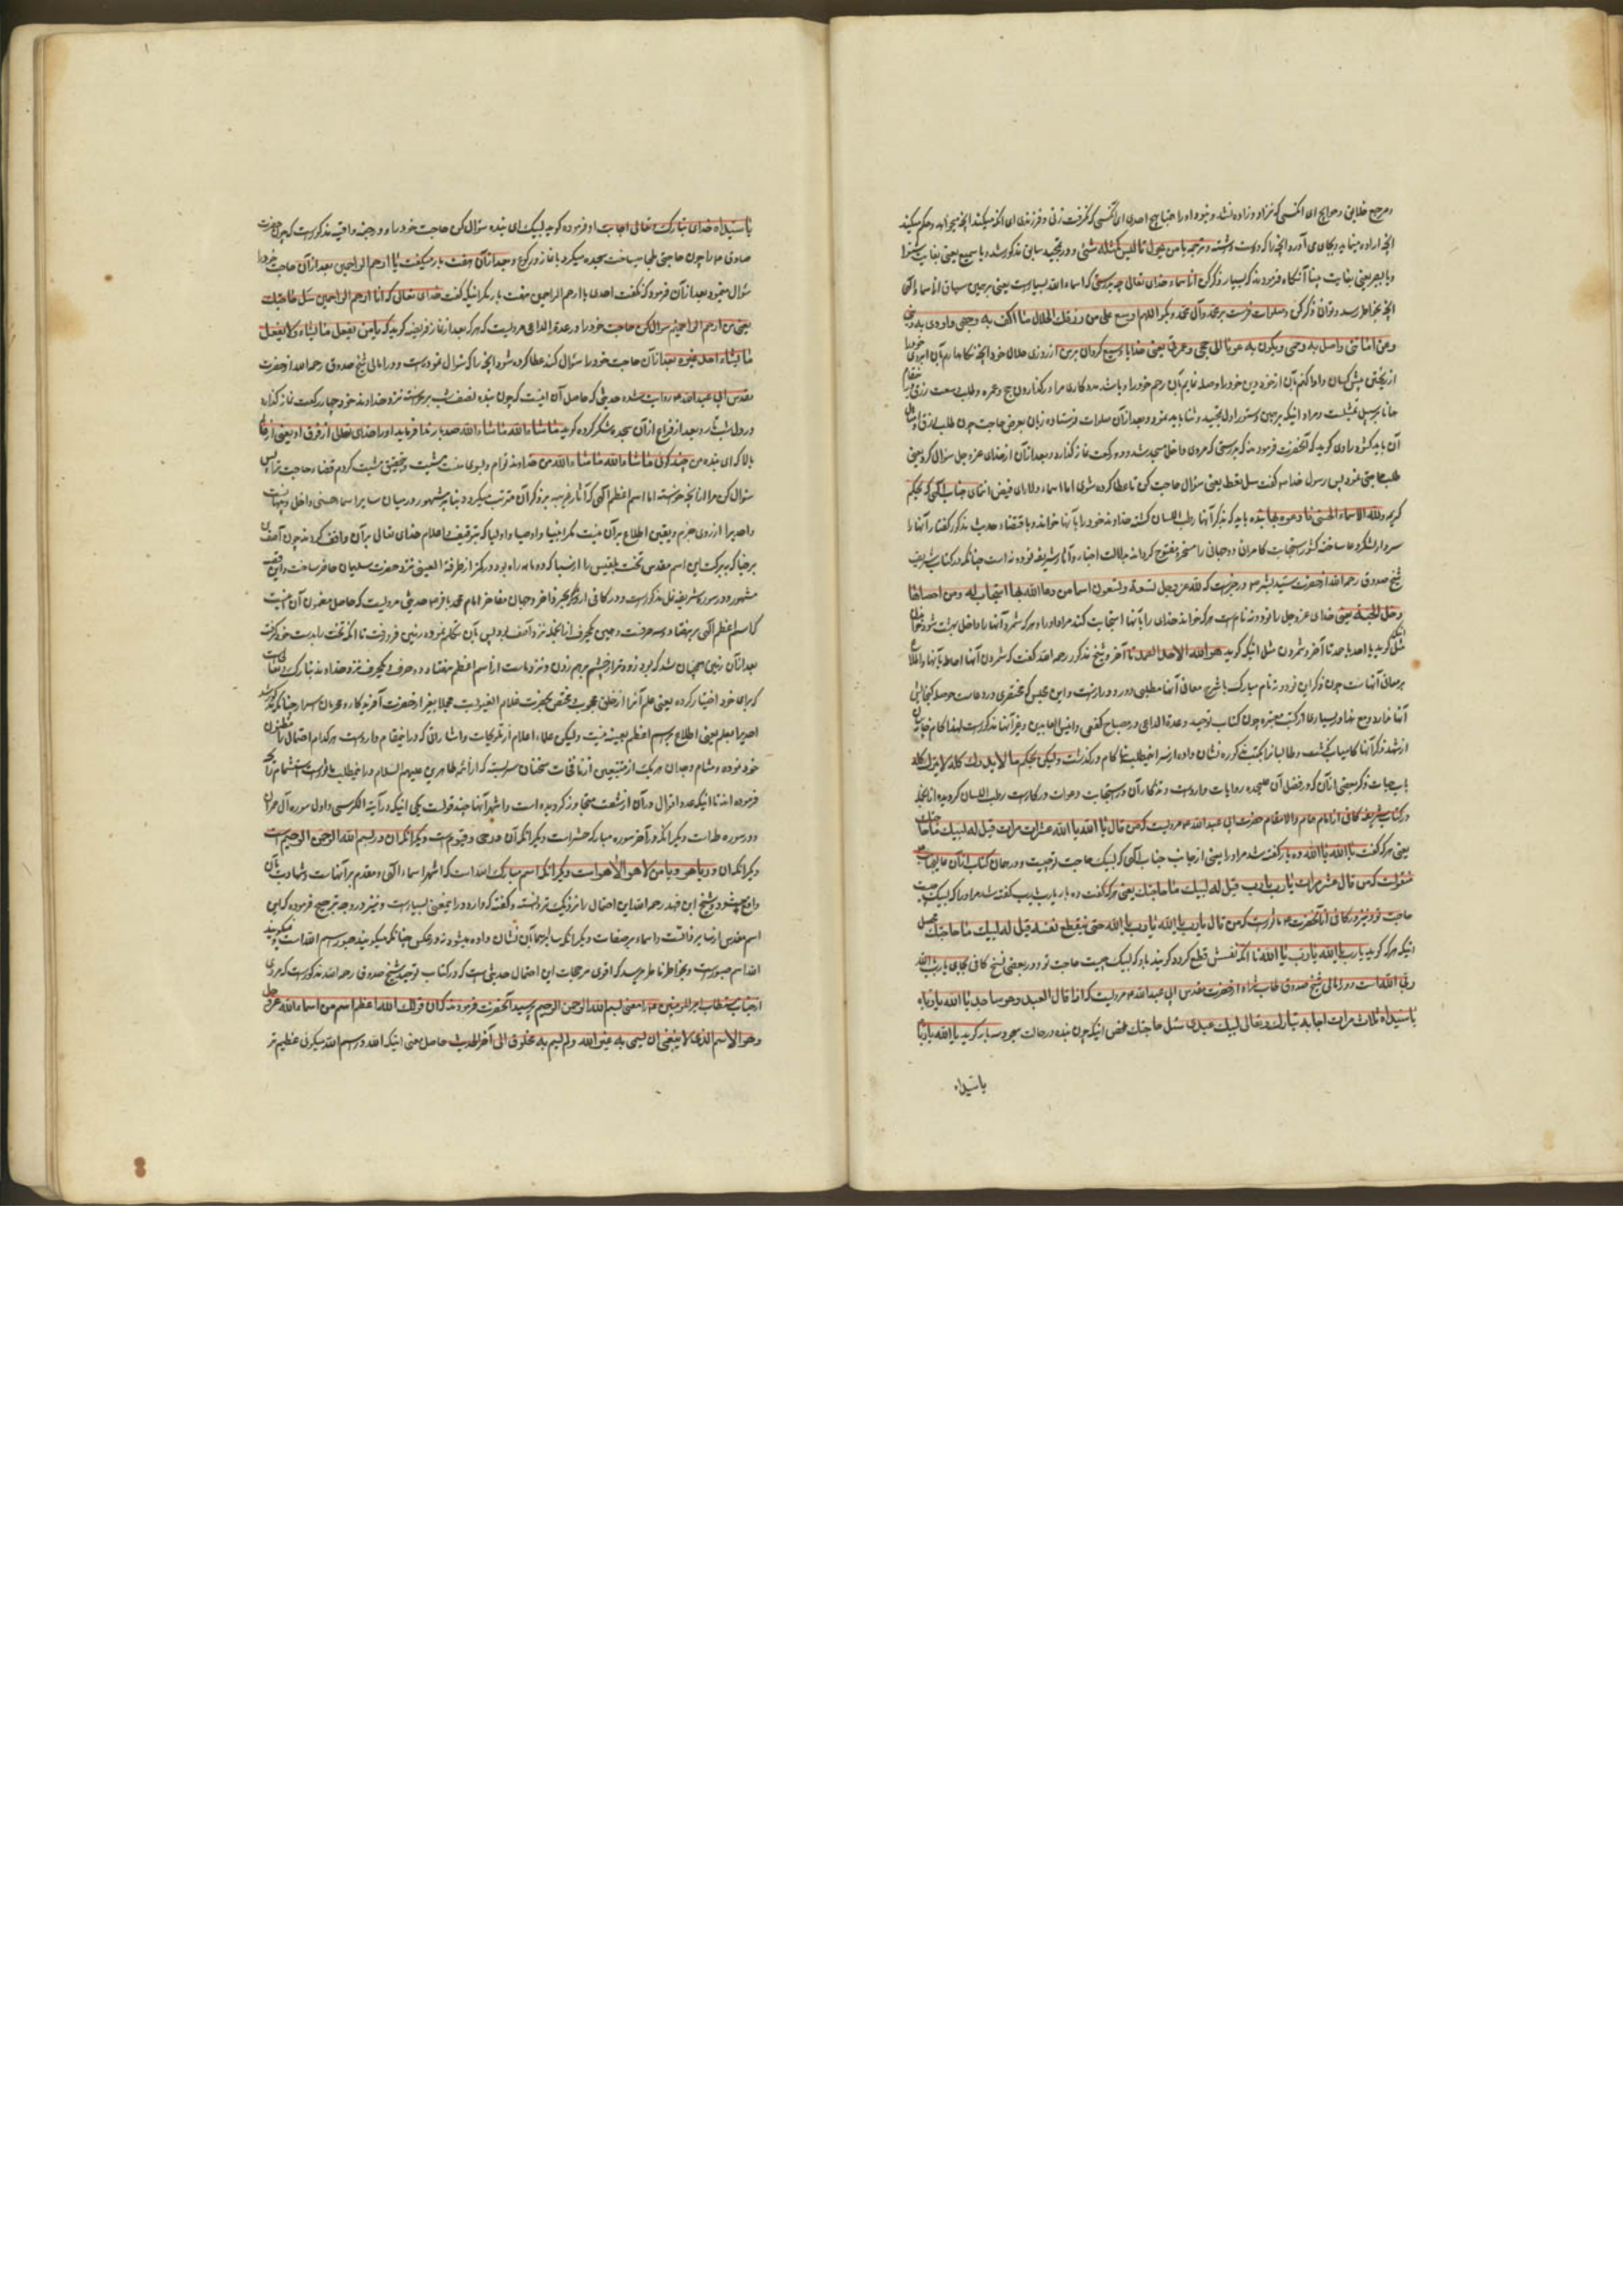 و مرجع خلایق و حوایج ای آنکسی که نزاد و زاده نشد و نبود او را همتا هیچ احدی ای آنکسی که نگرفت زنی و فرزندی ای آنکه میکند آنچه میخواهد و حکم میکند
آنچه اراده مینماید و بجای می آورد آنچه را که دوست داشته و ترجمه یا من یحول تا لیس کمثله شئ و در تمجید سابق مذکور شد و یا سمیع یعنی بغایت شنوا
و یا بصیر یعنی بغایت بینا آنگاه فرمودند که بسیار ذکر کن از اسماء خدای تعالی چه بدرستی که اسماء الله بسیارست یعنی بر همین سیاق از اسماء الهی
آنچه بخاطر رسد و توانی ذکر کن و صلوات فرست بر محمد و آل محمد و بگو اللهم اوسع علی من رزقک الحلال ما اکف به وجهی و اودی به دینی
و عن امانتی و اصل به رحمی و یکون به عونا لی حجی و عمرتی یعنی خدایا وسیع گردان بر من از روزی حلال خود آنچه نگاهدارم بآن آبروی خود را
از ریختن پیش کسان و ادا کنم بآن از خود دین خود را و صله نمایم بآن رحم خود را و باشد مددکاری مرا در گذاردن حج و عمره و طلب وسعت رزق
همانا بر سبیل تمثیلست و مراد اینکه بر همین دستور اول تمجید و ثنا باید نمود و بعد از آن صلوات فرستاده زبان بعرض حاجت چون طلب رزق و امثال
آن باید گشود راوی گوید که آنحضرت فرمودند که بدرستی که مردی داخل مسجد شد و دو رکعت نماز گذارد و بعد از آن از خدای عز و جل سؤال کرد یعنی
طلب حاجتی نمود پس رسول خدا ص گفت سل تعط یعنی سؤال حاجت کن تا عطا کرده شوی اما اسماء والای فیض انتمای جناب الهی که بحکم
کریمه ولله الاسماء الحسنی فادعوه بها بنده باید که بذکر آنها رطب اللسان گشته خداوند خود را بآنها خواند و باقتضاء حدیث مذکور گفتار آنها را
سردار لشکر دعا ساخته کشور استجابت کامران دو جهانی را مسخر و مفتوح گرداند بدلالت اخبار و آثار شریفه نود و نه است چنانکه در کتاب شریف
شیخ صدوق رحمه الله از حضرت سید البشر ص در خبرست که لله عز و جل تسعة و تسعون اسما من دعا الله بها استجاب له و من احصاها
دخل الجنة یعنی خدای عز و جل را نود و نه نام است هر که خواند خدای را بآنها استجابت کند مر او را و هر که شمرد آنها را داخل بهشت شود
مثل گوید یا احد یا صمد تا آخر و شمردن مثل اینکه گوید هو الله الاحد الصمد تا آخر و شیخ مذکور رحمه الله گفت که شمردن آنها احاطه بآنها و اطلاع
بر معانی آنهاست چون ذکر این نود و نه نام مبارک با شرح معانی آنها مطلبی دور و درازست و این مجلس که مختصری در دعاست حوصله گنجایش
آنها ندارد مع هذا در بسیاری از کتب معتبره چون کتاب توحید و عدة الداعی و مصباح کفعمی و انیس العابدین و غیر آنها مذکورست لهذا کام
از شهد ذکر آنها کامیاب نگشت و طالبان را بکتب مذکوره نشان داده از سر این مطلب ناکام در گذشت ولیکن بحکم ما لا یدرک کله لا یترک کله
باب حیات ذکر بعضی از آن که در فضل آن علیحده روایات وارد است و تذکار آن در استجابت دعوات در کارست رطب اللسان گردیده از آنجمله
در کتاب شریف کافی از امام همام والا مقام حضرت ابی عبد الله ع مرویست که من قال یا الله یا الله عشر مرات قیل له لبیک ما حاجتک
یعنی هر که گفت یا الله یا الله ده بار گفته شد مر او را یعنی از جانب جناب الهی که لبیک حاجت تو چیست و در همان کتاب از آن عالیجناب
منقولست که من قال عشر مرات یا رب یا رب قیل له لبیک ما حاجتک یعنی هر که گفت ده بار یا رب یا رب گفته شد مر او را که لبیک چیست
حاجت تو و نیز در کافی از آنحضرت ع ماثورست که من قال یا رب یا الله یا رب یا الله حتی ینقطع نفسه قیل له لبیک ما حاجتک
اینکه هر که گوید یا رب یا الله یا رب یا الله تا آنکه نفسش قطع گردد گویند باو که لبیک چیست حاجت تو و در بعضی نسخ کافی بجای یا رب یا الله
ربی الله است و در امالی شیخ صدوق طاب ثراه از حضرت مقدس ابی عبد الله ع مرویست که اذا قال العبد و هو ساجد یا الله یا رباه
یا سیداه ثلاث مرات اجابه تبارک و تعالی لبیک عبدی سل حاجتک محصل اینکه چون بنده در حالت سجود سه بار گوید یا الله یا رباه
یا سیداه
یا سیداه خدای تبارک و تعالی اجابت او فرموده گوید لبیک ای بنده سؤال کن حاجت خود را و در جنه واقیه مذکورست که چون حضرت
صادق ع را چون حاجتی ملجا میساخت سجده میکرد بی نماز و رکوع و بعد از آن هفت بار میگفت یا ارحم الراحمین بعد از آن حاجت خود را
سؤال مینمود بعد از آن فرمود که نگفت احدی یا ارحم الراحمین هفت بار مگر اینکه گفت خدای تعالی که انا ارحم الراحمین سل حاجتک
یعنی من ارحم الراحمینم سؤال کن حاجت خود را و در عدة الداعی مرویست که هر که بعد از نماز فریضه گوید که یا من یفعل ما یشاء و لا یفعل
ما یشاء احد غیره بعد از آن حاجت خود را سؤال کند عطا کرده شود آنچه را که سؤال نموده است و در امالی شیخ صدوق رحمه الله از حضرت
مقدس ابی عبد الله ع روایت شده حدیثی که حاصل آن اینست که چون بنده نصف شب برخاسته نزد خداوند خود چهار رکعت نماز گذارد
در دل شب تار و بعد از فراغ از آن سجده شکر کرده گوید ما شاء الله ما شاء الله صد بار ندا فرماید او را خدای تعالی از فوق او یعنی از
بالا که ای بنده من چند گوئی ما شاء الله ما شاء الله من خداوند توام و بسوی منست مشیت و بتحقیق مشیت کردم قضاء حاجت ترا پس
سؤال کن مرا از آنچه خواسته اما اسم اعظم الهی که آثار غریبه بر ذکر آن مترتب میگردد بنا بر مشهور در میان سایر اسماء حسنی داخل و پنهانست
و احدیرا از روی جزم و یقین اطلاع بر آن نیست مگر انبیا و اوصیا و اولیا که بتوقیف و اعلام خدای تعالی بر آن واقف گردند چون آصف بن
برخیا که ببرکت این اسم مقدس تخت بلقیس را از سبا که دو ماهه راه بود در کمتر از طرفة العینی نزد حضرت سلیمان حاضر ساخت و این قصه
مشهور و در سوره شریفه نمل مذکورست و در کافی از بحر ذاخر و جهان مفاخر امام محمد باقر ع حدیثی مرویست که حاصل مضمون آن اینست
که اسم اعظم الهی بر هفتاد و سه حرفست و همین یکحرف از آنجمله نزد آصف بود پس بآن تکلم نموده زمین فرو رفت تا آنکه تخت را بدست خود گرفت
بعد از آن زمین همچنان شد که بود زودتر از چشم بر هم زدن و نزد ماست از اسم اعظم هفتاد و دو حرف و یکحرف نزد خداوند تبارک و تعالی است
که برای خود اختیار کرده یعنی علم آنرا از خلق محجوب و مختص بحضرت علام الغیوبست مجملا بغیر از حضرت آفریدگار و محرمان اسرار
احدیرا بعلم یعنی اطلاع بر اسم اعظم بعینه نیست ولیکن علماء اعلام از تلویحات و اشاراتی که در اینمقام وارد است هر کدام احتمال
خود نموده و مشام وجدان هر یک از متتبعین از نافجات سخنان سراسر که از ائمه طاهرین علیهم السلام در اینمطلب ماثورست استشمام
فرموده اند تا اینکه عدد اقوال در آن از شصت متجاوز گردیده است و اشهر آنها چند قولست یکی اینکه در آیة الکرسی و اول سوره آل عمران
و در سوره طه است و دیگر آنکه در آخر سوره مبارکه حشر است و دیگر آنکه آن در حی و قیومست و دیگر آنکه آن در بسم الله الرحمن الرحیم است
و دیگر آنکه آن در یا هو و یا من لا هو الا هو است و دیگر آنکه اسم مبارک الله است که اشهر اسماء الهی و مقدم بر آنهاست و شهادت بآن
واقع میشود و شیخ ابن فهد رحمه الله این احتمال را نزدیک تر دانسته و گفته که وارده در اینمعنی بسیارست و نیز در وجه ترجیح فرموده که این
اسم مقدس از سایر فائقست و اسماء بر صفات و دیگر آنکه سایر اسما بآن نشان داده میشود نه بر عکس چنانکه میگویند صبور اسم الله است نمیگویند
الله اسم صبورست و بخاطر فاتر میرسد که اقوی مرجحات این احتمال حدیثی است که در کتاب توحید شیخ صدوق رحمه الله مذکورست که مردی
از جناب مستطاب امیر المؤمنین ع از معنی بسم الله الرحمن الرحیم پرسید آنحضرت فرمودند که ان قولک الله اعظم اسم من اسماء الله عز و جل
و هو الاسم الذی لا ینبغی ان یسمی به غیر الله و لم یسم به مخلوق الی آخر الحدیث حاصل معنی اینکه الله در اسم الله میگوئی عظیم تر